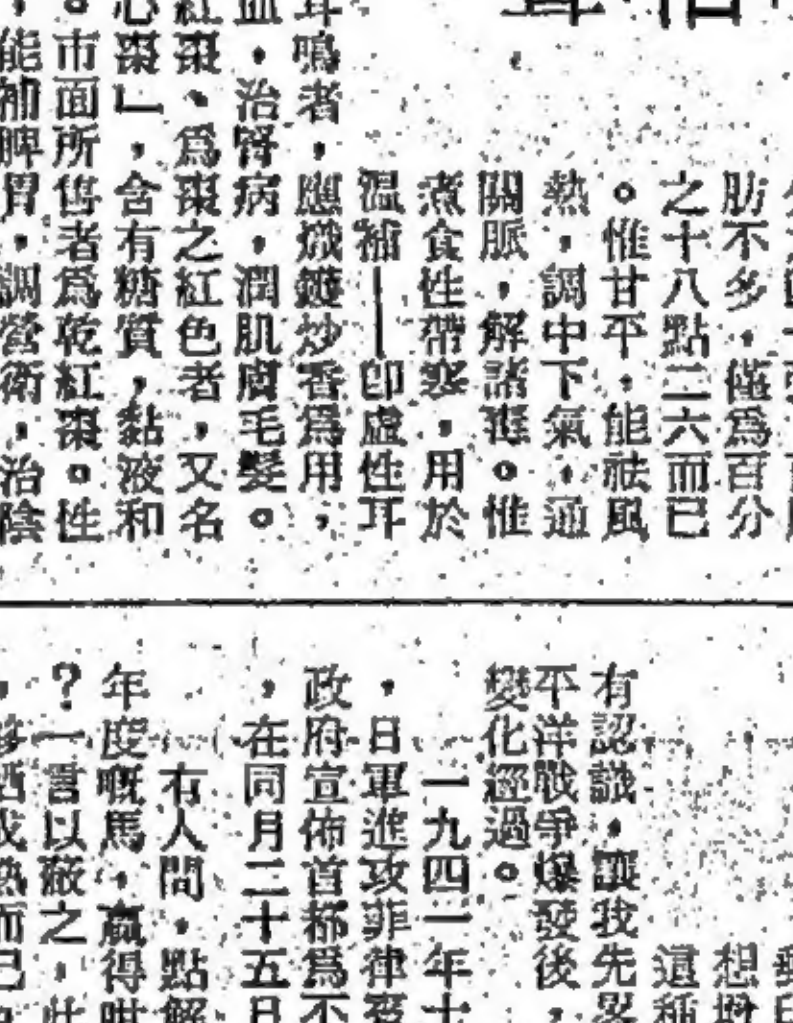 肪不多，僅爲百分
之十八點二六而已
。惟甘平，能祛風
熱，調中下氣，通
關脈，解諸毒。惟
煮食性帶寒，用於
溫補——卽虛性耳
耳鳴者，應熾鑊炒香爲用，
血，治腎病，潤肌膚毛髮。
紅棗、爲棗之紅色者，又名
心棗」，含有糖質，黏液和
。市面所售者爲乾紅棗。性
，能補脾胃，調營衛，治陰
想
這種
有認識，讓我先
平洋戰爭爆發後，
變化經過。
一九四一年十
，日軍進攻菲律
政府宣佈首都爲不
，在同月二十五日
冇人問，點解
年度嘅馬，贏得咁
？一言以蔽之，此
成熟而已